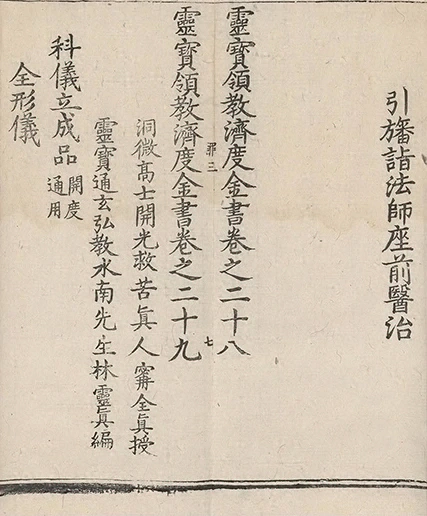 引旛詣法師座前醫治
靈寶領教濟度金書卷之二十八
罪三
七
靈寶領教濟度金書卷之二十九
洞微高士開光救苦眞人甯全眞授
靈寶通玄弘教水南先生林靈眞編
科儀立成品 開度通用
全形儀